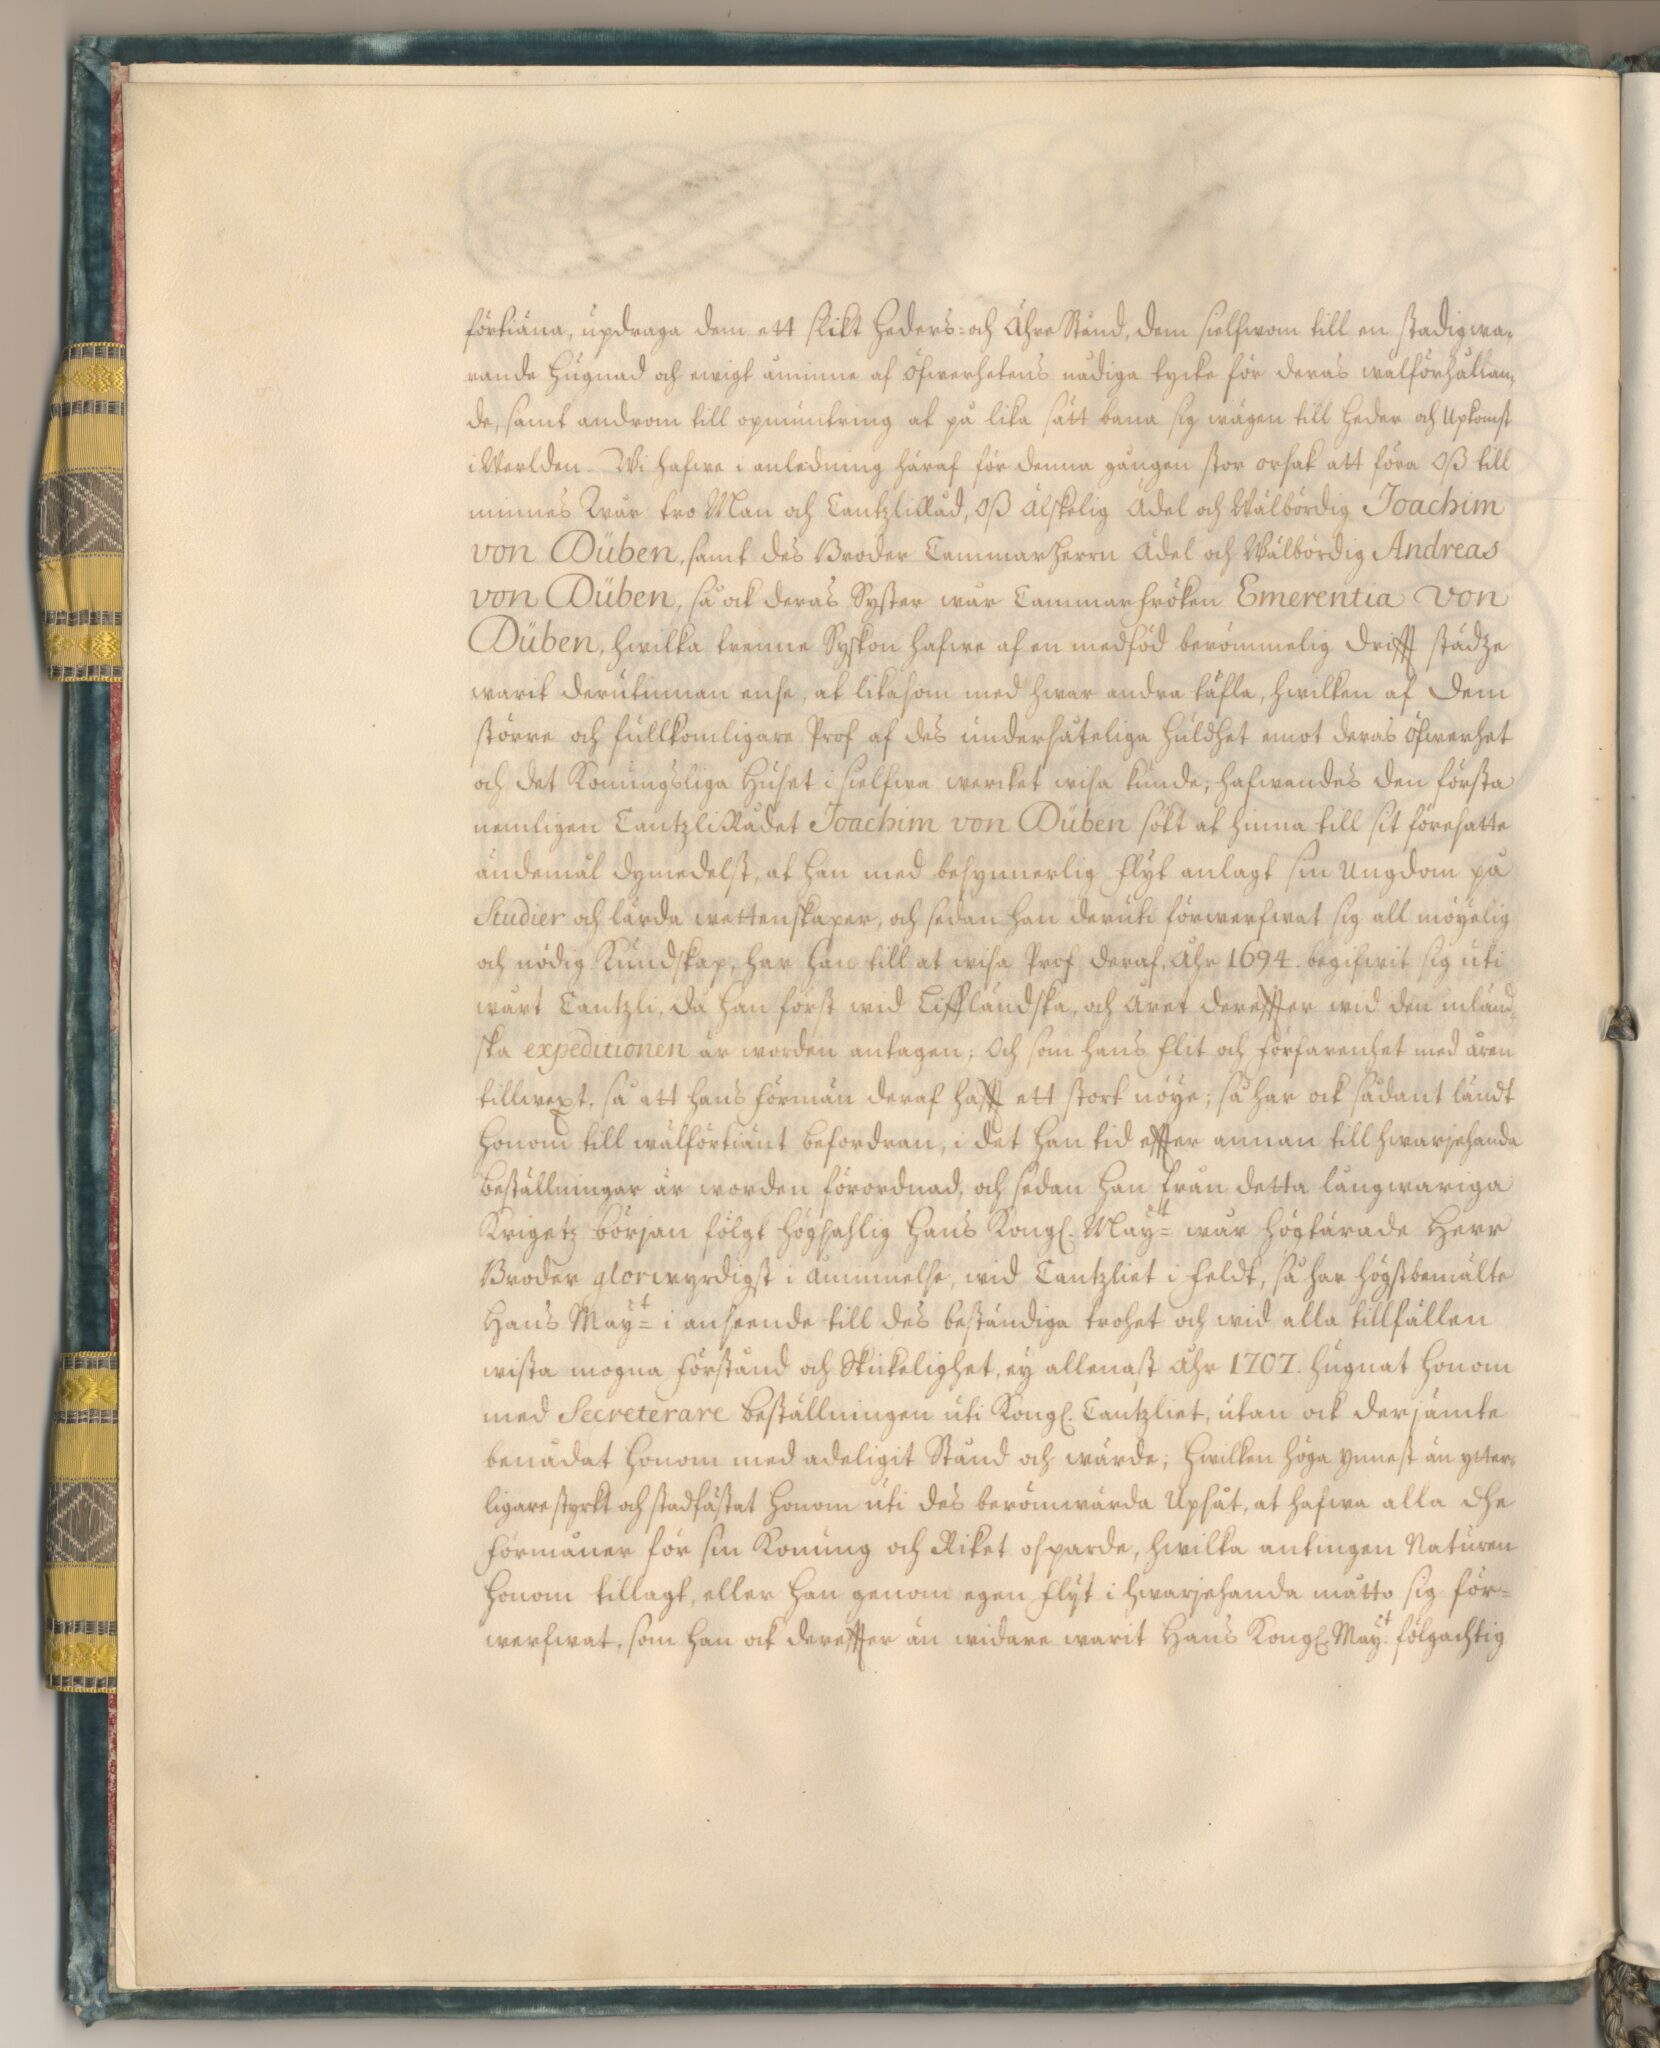 förtiäna, updraga dem ett slikt Heders- och Ähre Stånd, dem sielfwom till en stadigwa-
rande Hugnad och ewigt åminne af Öfwerhetens nådiga tycke för deras wälförhållan-
de, samt androm till opmuntring at på lika sätt bana sig wägen till Heder och Upkomst
i Werlden. Wi hafwe i anledning häraf för denna gången stor orsak att föra Oß till
minnes Wår tro Man och CantzliRåd, Oß Älskelig Ädel och Wälbördig Joachim
von Düben, samt des Broder Cammarherrn Ädel och Wälbördig Andreas
von Düben, så ock deras Syster wår Cammarfröken Emerentia von
Düben, hwilka trenne Syskon hafwe af en medfödd berömmelig drifft städze
warit derutinnan ense, at likasom med hwar andra täfla, hwilken af dem
större och fullkomligare Prof af des undersåteliga huldhet emot deras Öfwerhet
och det Konungsliga Huset i sielfwa wercket wisa kunde; hafwandes den första
nemligen CantzliRådet Joachim von Düben sökt at hinna till sit föresatte
ändemål dymedelst, at han med besynnerlig flijt anlagt sin Ungdom på
Studier och lärda wettenskaper, och sedan han deruti förwerfwat sig all möyelig
och nödig Kundskap, har han till at wisa Prof deraf, Åhr 1694. begifwit sig uti
wårt Cantzli, då han först wid Liffländska, och Året derefter wid den inländ-
ska expeditionen är worden antagen; Och som hans flit och förfarenhet med åren
tillwext, så att hans Förmän deraf hafft ett stort nöye; så har ock sådant ländt
honom till wälförtiänt befordran, i det han tid effter annan till hwarjehanda
beställningar är worden förordnad, och sedan han från detta långwariga
Krigetz början fölgt högsahlig Hans Kongl. Mayt= wår högtärade Herr
Broder glorwyrdigst i åminnelse, wid Cantzliet i Feldt, så har högstbemälte
Hans Mayt= i anseende till des beständiga trohet och wid alla tillfällen
wista mogna förstånd och Skickelighet, ey allenast Åhr 1707. hugnat honom
med Secreterare beställningen uti Kongl. Cantzliet, utan ock derjämte
benådat honom med adeligit Stånd och wärde; hwilken höga ynnest än ytter-
ligare styrkt och stadfästat honom uti des berömwärda Upsåt, at hafwa alla dhe
förmåner för sin Konung och Riket osparde, hwilka antingen Naturen
honom tillagt, eller han genom egen flijt i hwarjehanda måtto sig för-
werfwat, som han ock dereffter än widare warit Hans Kongl. Mayt. fölgachtig